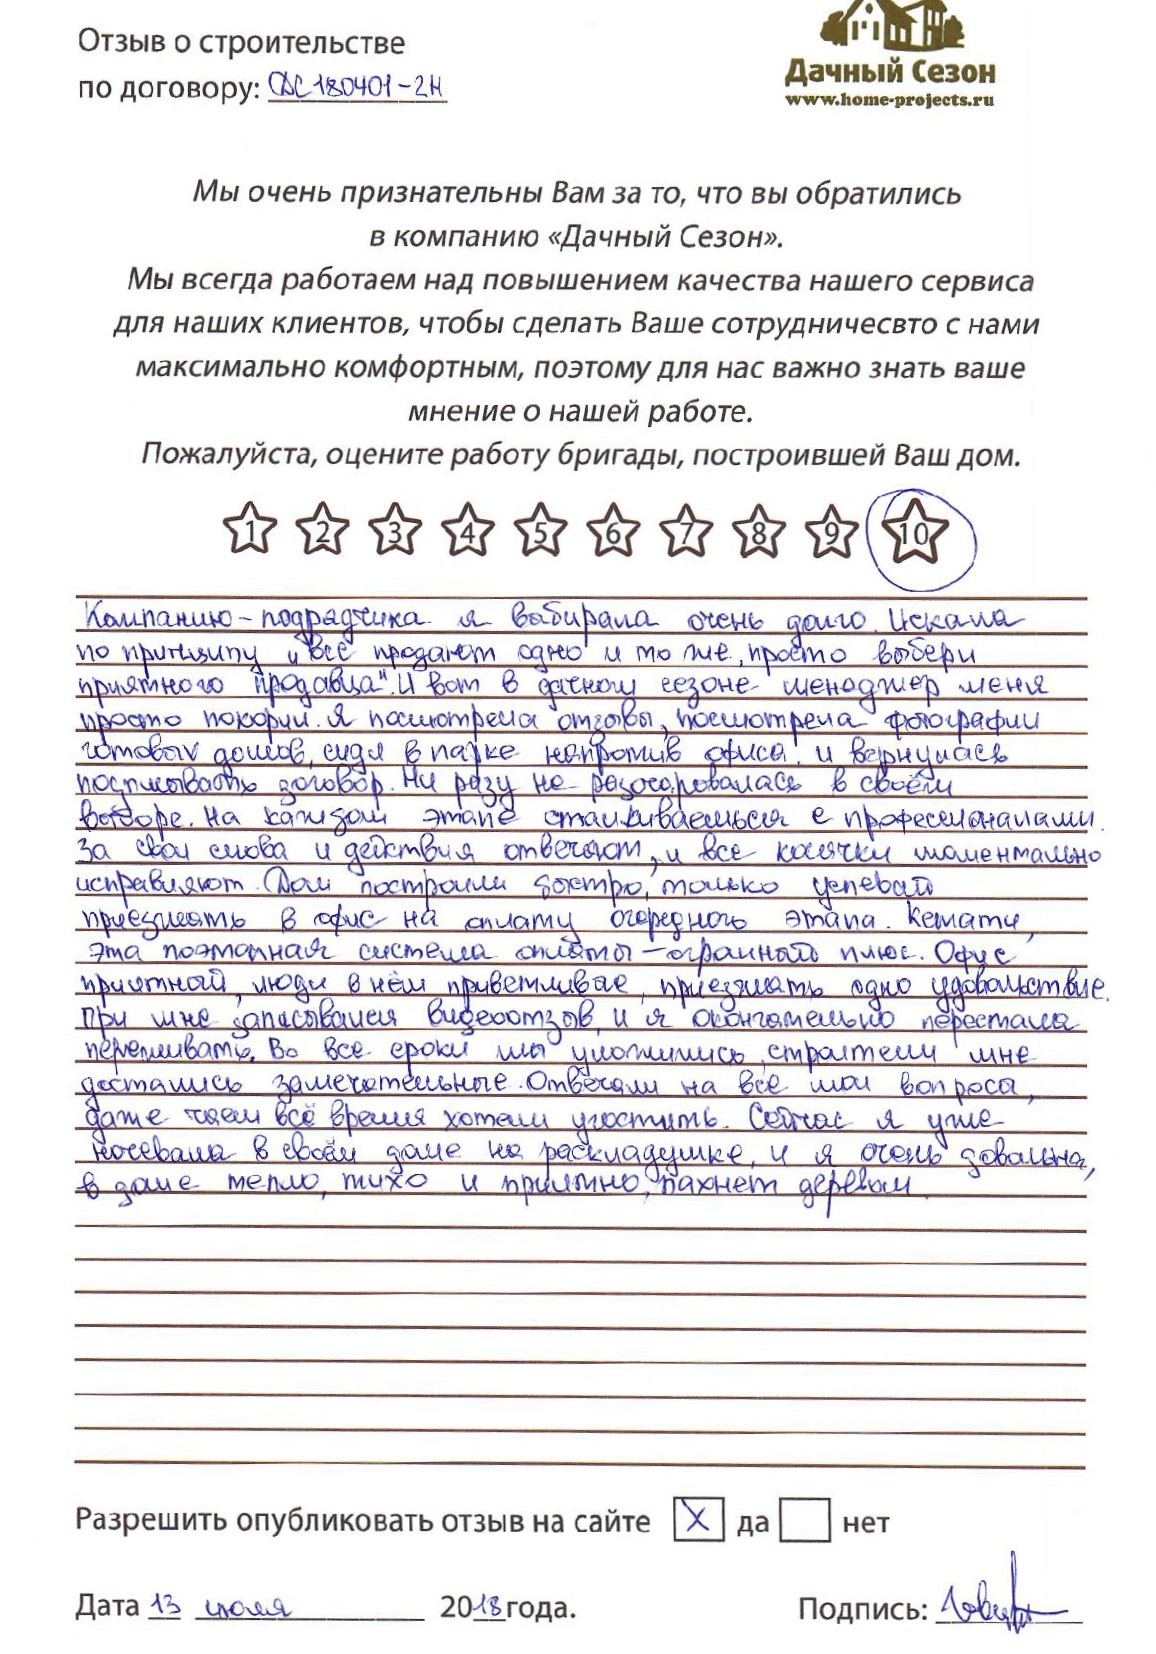 Отзыв о строительстве
по договору: ДС180401-2Н
Дачный Сезон
www.home-projects.ru
Мы очень признательны Вам за то, что вы обратились
в компанию «Дачный Сезон».
Мы всегда работаем над повышением качества нашего сервиса
для наших клиентов, чтобы сделать Ваше сотрудничесвто с нами
максимально комфортным, поэтому для нас важно знать ваше
мнение о нашей работе.
Пожалуйста, оцените работу бригады, построившей Ваш дом.
1 2 3 4 5 6 7 8 9 10
Компанию-подрядчика я выбирала очень долго. Искала
по принципу "все продают одно и то же, просто выбери
приятного продавца". И вот в дачном сезоне менеджер меня
просто покорил. Я посмотрела отзывы, посмотрела фотографии
готовых домов, сидя в парке напротив офиса, и вернулась
подписывать договор. Ни разу не разочаровалась в своём
выборе. На каждом этапе сталкиваешься с профессионалами.
За свои слова и действия отвечают, и все косячки моментально
исправляют. Дом построили быстро, только успевай
приезжать в офис на оплату очередного этапа. Кстати,
эта поэтапная система оплаты - огромный плюс. Офис
приятный, люди в нём приветливые, приезжать одно удовольствие.
При мне записывался видеоотзыв, и я окончательно перестала
переживать. Во все сроки мы уложились, строители мне
достались замечательные. Отвечали на все мои вопросы,
даже чаем всё время хотели угостить. Сейчас я уже
ночевала в своём доме на раскладушке, и я очень довольна,
в доме тепло, тихо и приятно пахнет деревом.
Разрешить опубликовать отзыв на сайте X да нет
Дата 13 июля 2018 года. Подпись: